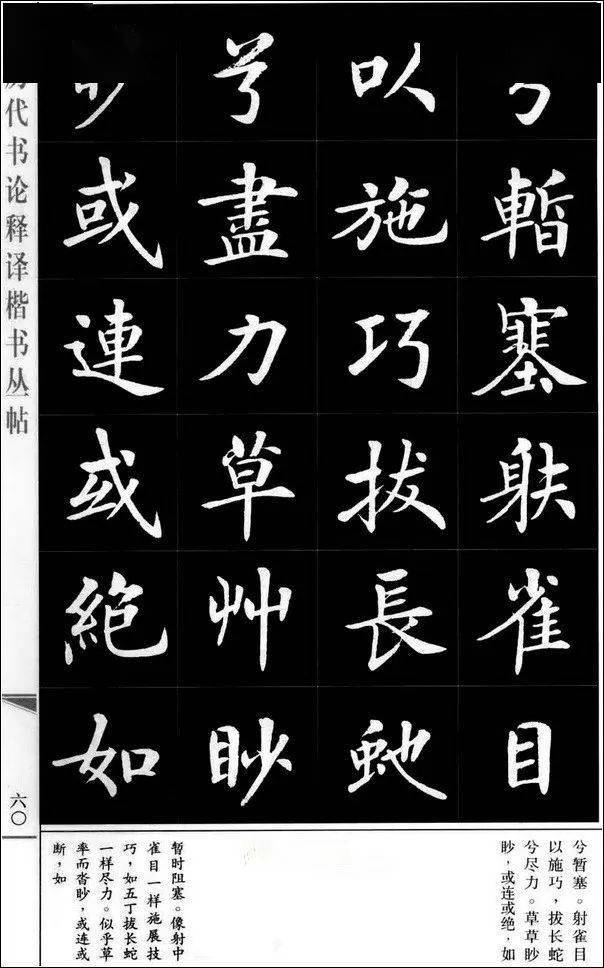 暫塞射雀目
以施巧拔長虵
兮盡力草艸眇
或連或絕如
代书论释译楷书丛帖
六〇
兮暂塞。射雀目
以施巧，拔长蛇
兮尽力。草草眇
眇，或连或绝，如
暂时阻塞。像射中
雀目一样施展技
巧，如五丁拔长蛇
一样尽力。似乎草
率而杳眇，或连或
断，如